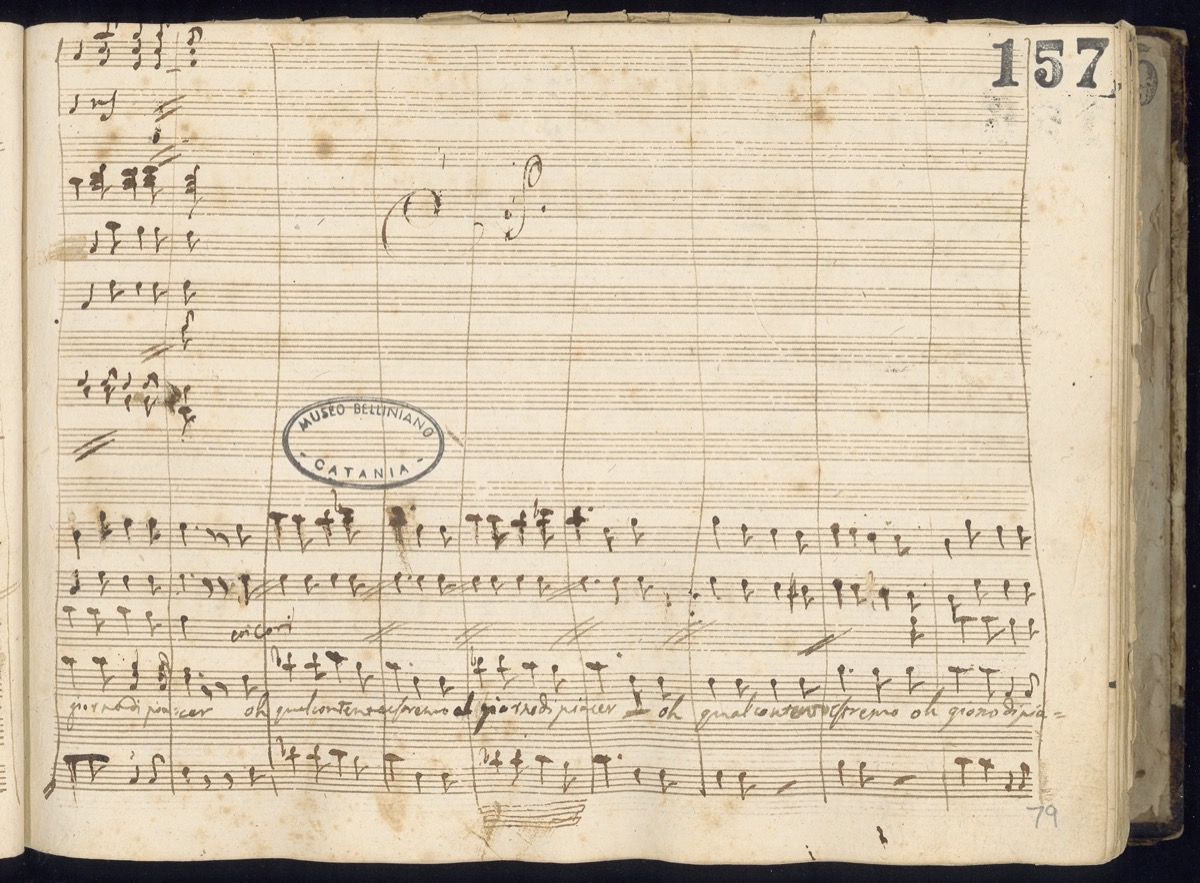 157
MUSEO BELLINIANO
- CATANIA -
coi Cori
giorno di piacer oh qual contento estremo al giorno di piacer oh qual contento estremo oh giorno di pia=
79